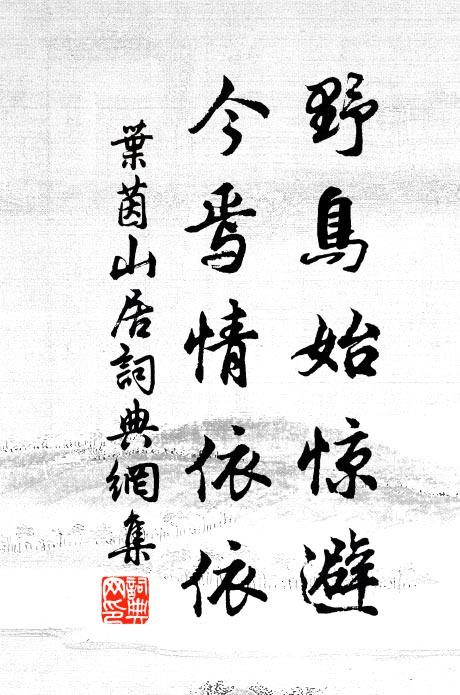 野鳥始惊避
今焉情依依
葉茵山居詞典網集
詞典